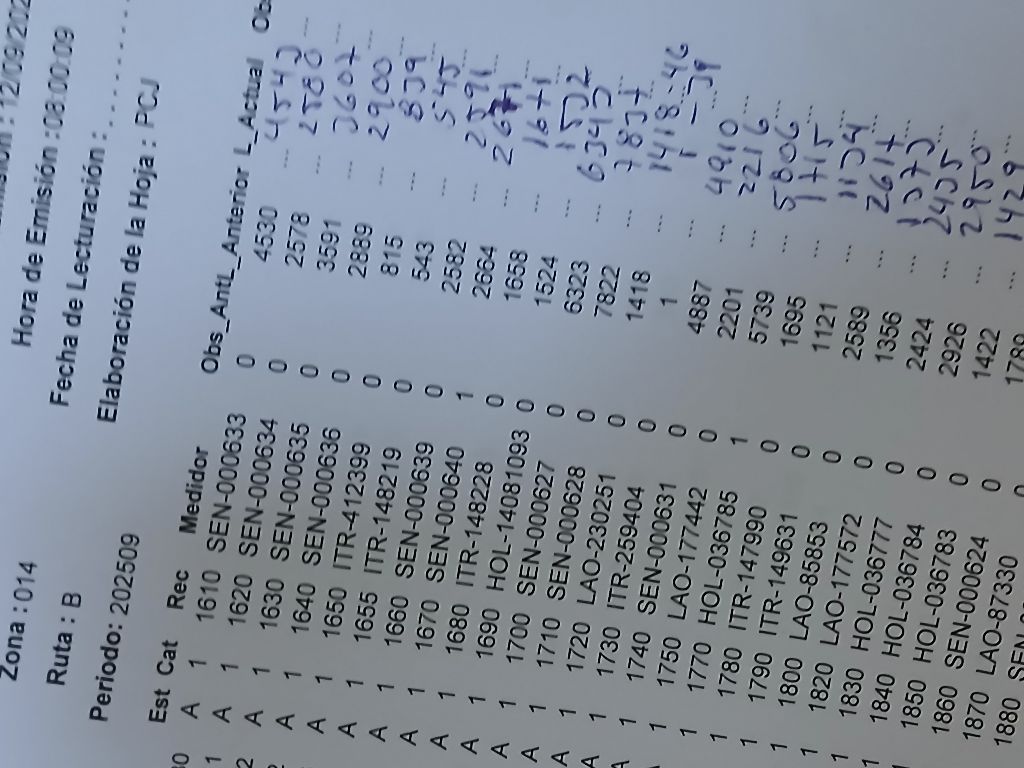 Emisión : 12/09/202
Zona : 014 Hora de Emisión : 08:00:09
Ruta : B Fecha de Lecturación : ........
Periodo: 202509 Elaboración de la Hoja : PCJ
Est Cat Rec Medidor Obs_Ant L_Anterior L_Actual Ob
A 1 1610 SEN-000633 0 4530 ... 4543 ...
A 1 1620 SEN-000634 0 2578 ... 2580 ...
A 1 1630 SEN-000635 0 3591 ... 3607 ...
A 1 1640 SEN-000636 0 2889 ... 2900 ...
A 1 1650 ITR-412399 0 815 ... 839 ...
A 1 1655 ITR-148219 0 543 ... 545 ...
A 1 1660 SEN-000639 0 2582 ... 2591 ...
A 1 1670 SEN-000640 1 2664 ... 2671 ...
A 1 1680 ITR-148228 0 1658 ... 1671 ...
A 1 1690 HOL-14081093 0 1524 ... 1532 ...
A 1 1700 SEN-000627 0 6323 ... 6343 ...
A 1 1710 SEN-000628 0 7822 ... 7837 ...
A 1 1720 LAO-230251 0 1418 ... 1418-46
A 1 1730 ITR-259404 0 1 ... 1-39
1 1740 SEN-000631 0 4887 ... 4910 ...
1 1750 LAO-177442 0 2201 ... 2216 ...
1 1770 HOL-036785 1 5739 ... 5806 ...
1 1780 ITR-147990 0 1695 ... 1715 ...
1 1790 ITR-149631 0 1121 ... 1134 ...
1 1800 LAO-85853 0 2589 ... 2617 ...
1 1820 LAO-177572 0 1356 ... 1373 ...
1 1830 HOL-036777 0 2424 ... 2435 ...
1840 HOL-036784 0 2926 ... 2950 ...
1850 HOL-036783 0 1422 ... 1429 ...
1860 SEN-000624 0 1789
1870 LAO-87330 0
1880 SEN